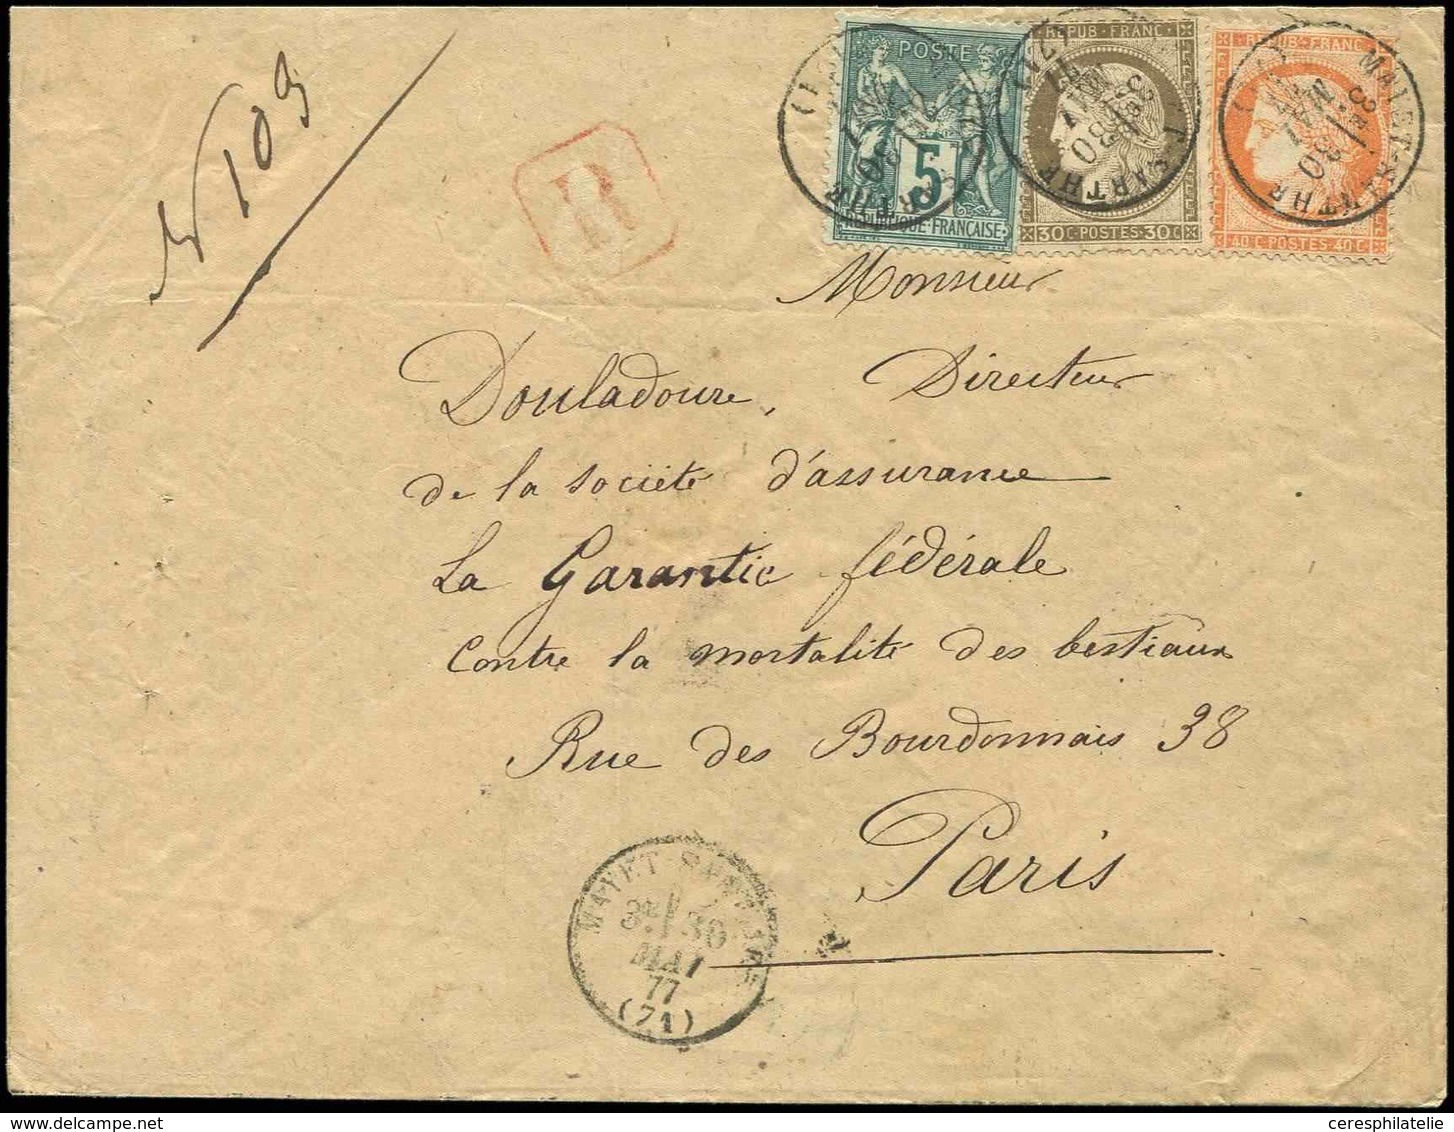 N° 109
R
POSTE
5
RÉPUBLIQUE FRANÇAISE
REPUB FRANC
30 C POSTES 30 C
REPUB FRANC
40 C POSTES 40 C
Monsieur
Douladoure, Directeur
de la société d'assurance
La Garantie fédérale
contre la mortalité des bestiaux
Rue des Bourdonnais 38
Paris
MAYET SARTHE
3E 30
MAI
77
(71)
ceresphilatelie